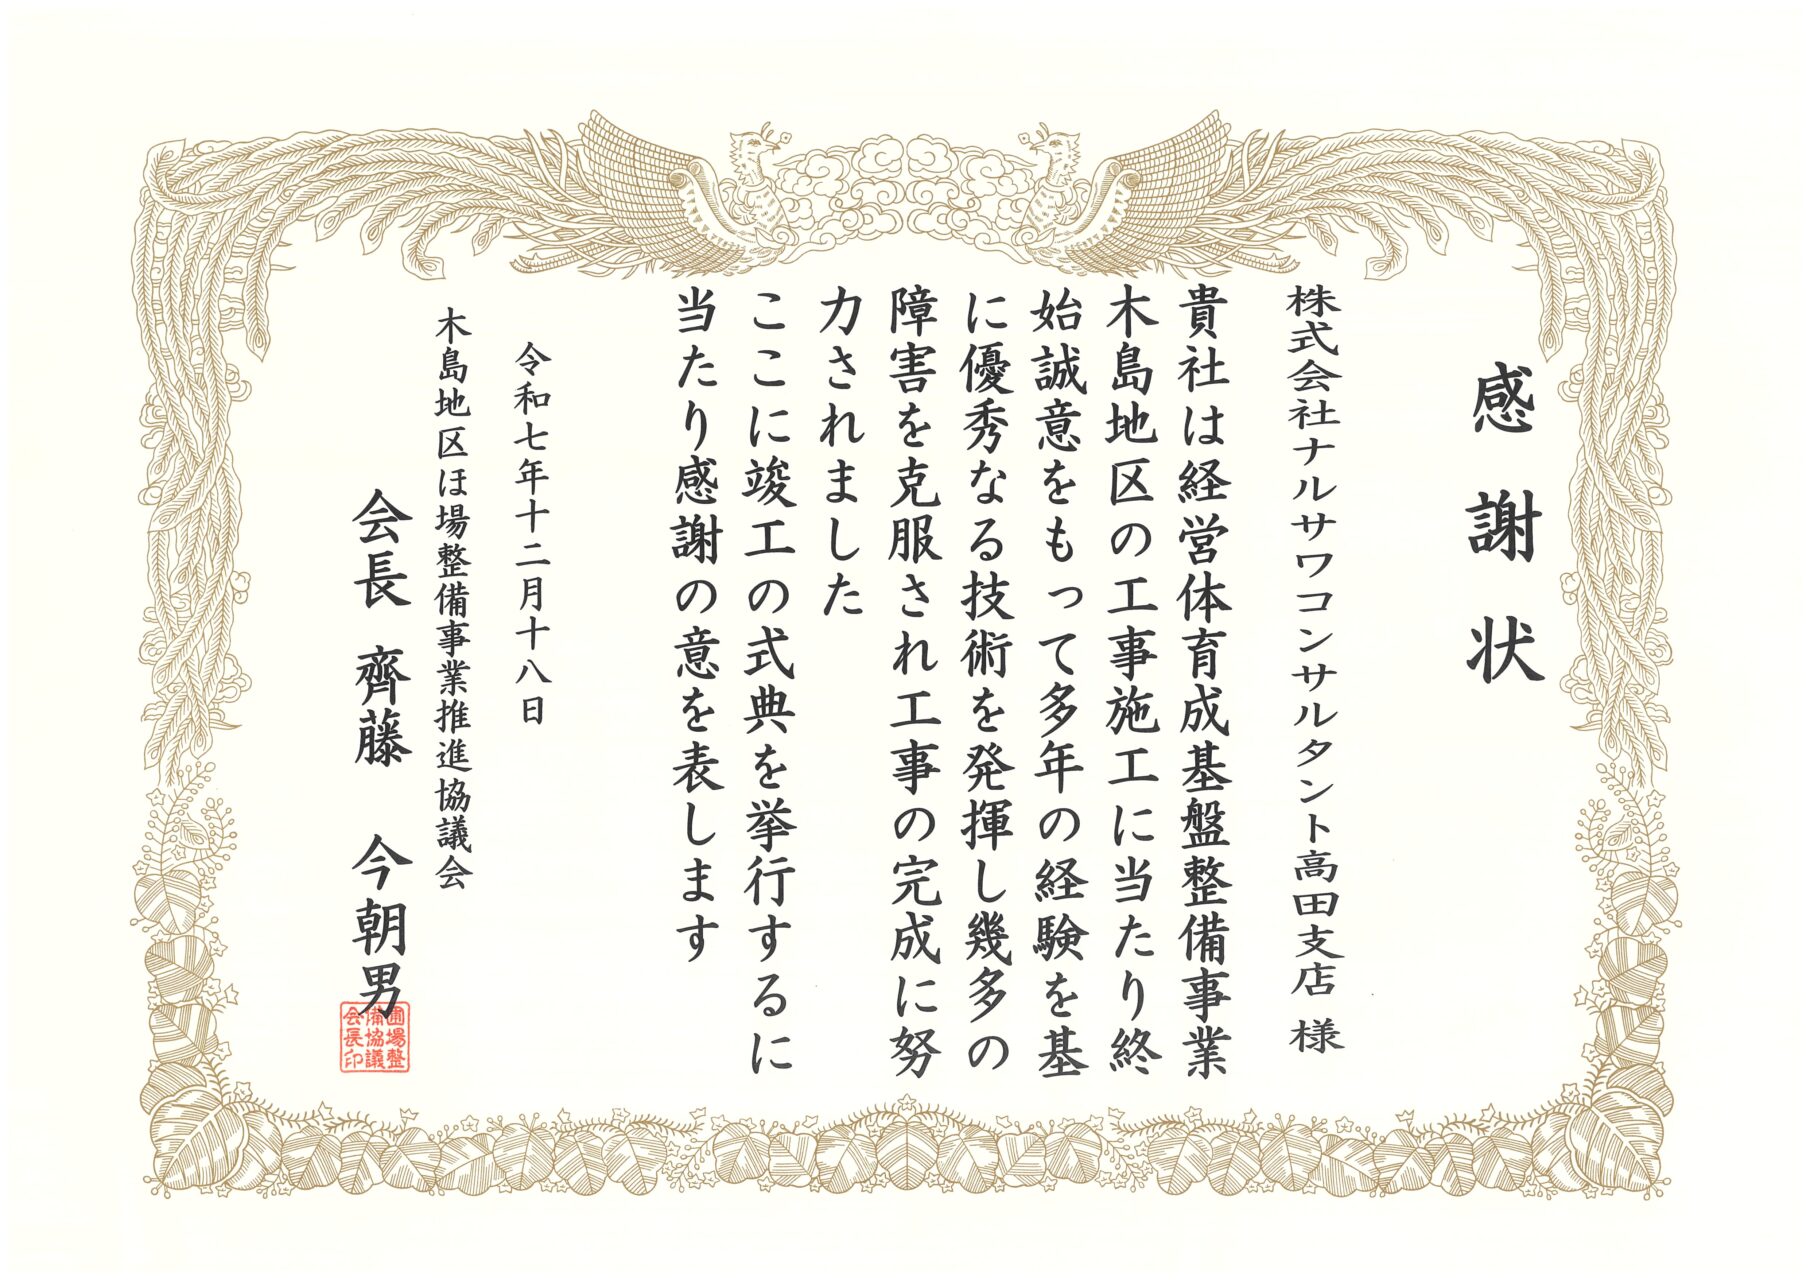 感謝状
株式会社ナルサワコンサルタント高田支店 様
貴社は経営体育成基盤整備事業
木島地区の工事施工に当たり終
始誠意をもって多年の経験を基
に優秀なる技術を発揮し幾多の
障害を克服され工事の完成に努
力されました
ここに竣工の式典を挙行するに
当たり感謝の意を表します
令和七年十二月十八日
木島地区ほ場整備事業推進協議会
会長 齊藤 今朝男
圃場整
備協議
会長印